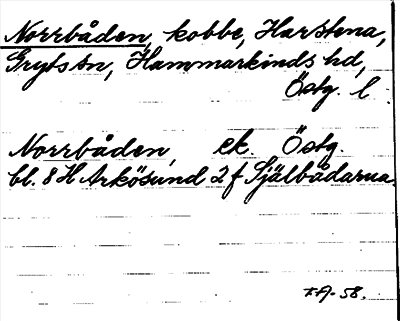 Norrbåden, kobbe, Harstena,
Gryts sn, Hammarkinds hd,
Östg. l.
Norrbåden ek. Östg.
bl. 8 H Arkösund 2 f Själbådarna.
T.A. 58.